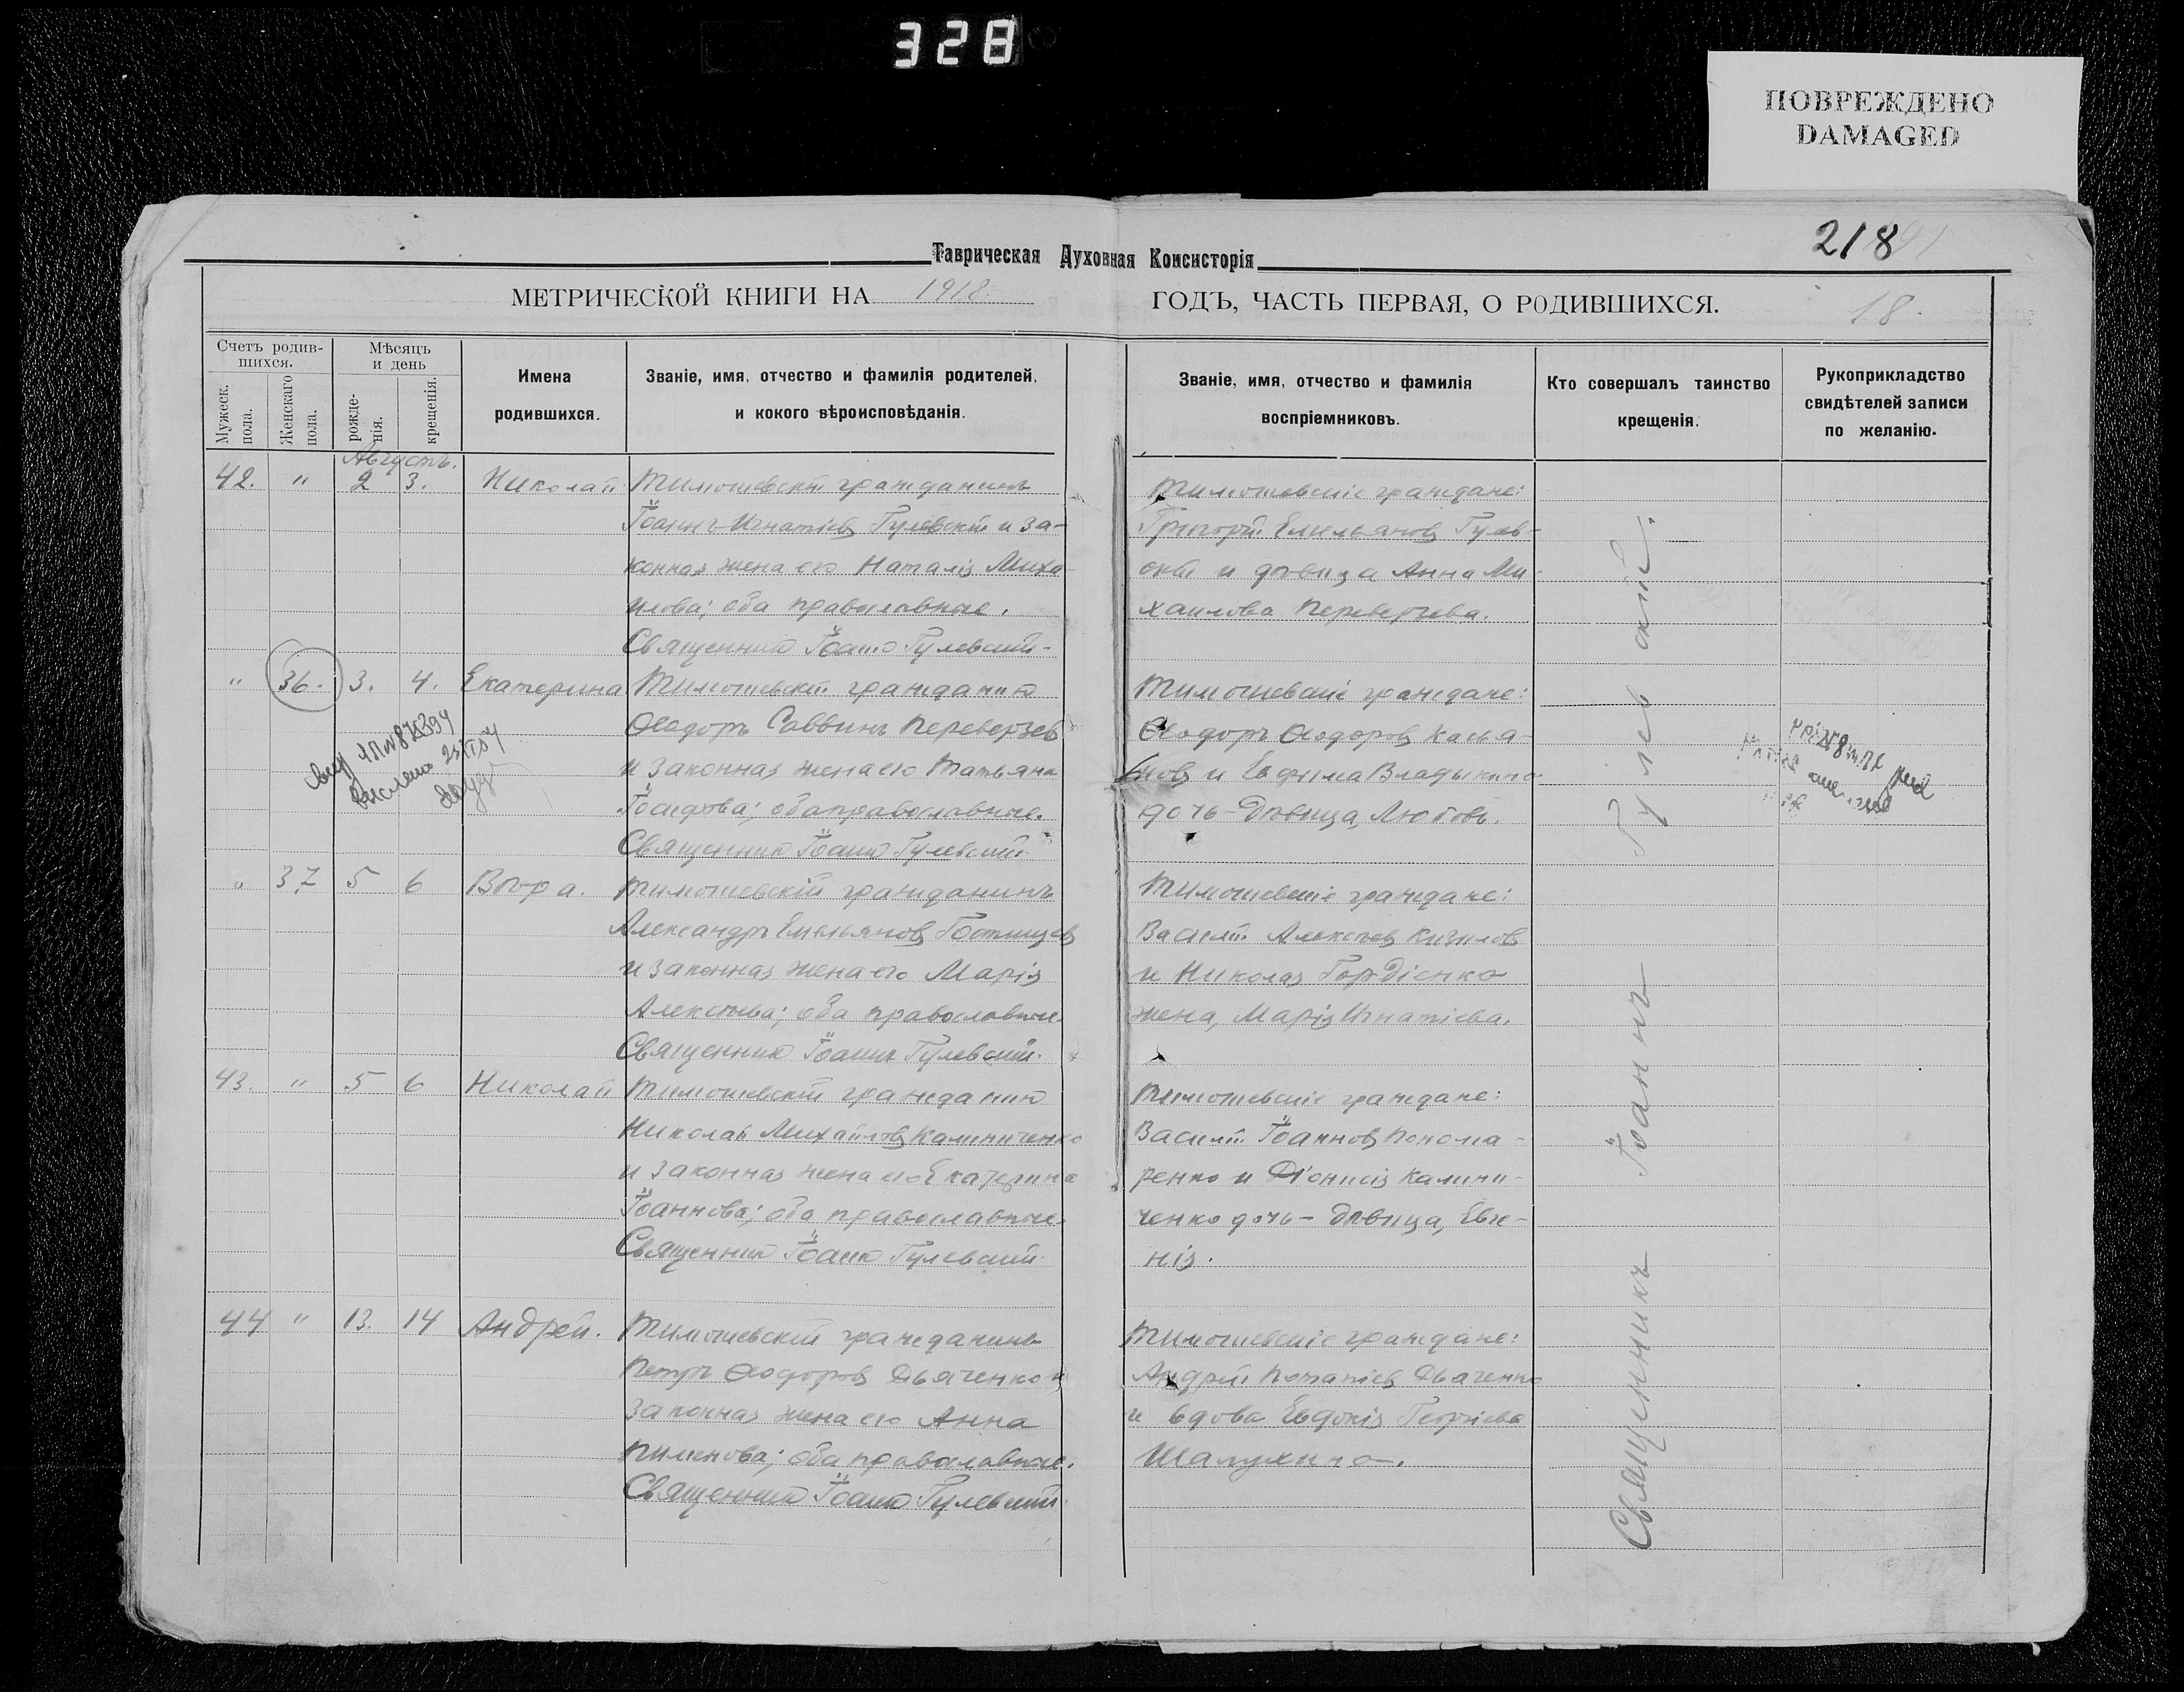 328
ПОВРЕЖДЕНО
DAMAGED
218
Таврическая Духовная Консисторія
МЕТРИЧЕСКОЙ КНИГИ НА 1918 ГОДЪ, ЧАСТЬ ПЕРВАЯ, О РОДИВШИХСЯ.
18.
Счетъ родив-
шихся.
Мужеск. пола.
Женскаго пола.
Мѣсяцъ
и день
рожде-
нія.
крещенія.
Имена
родившихся.
Званіе, имя, отчество и фамилія родителей,
и кокого вѣроисповѣданія.
Званіе, имя, отчество и фамилія
воспріемниковъ.
Кто совершалъ таинство
крещенія.
Рукоприкладство
свидѣтелей записи
по желанію.
Августъ.
42. " 2 3. Николай Тимошевскій гражданинъ
Іоаннъ Игнатіевъ Гулевскій и за-
конная жена его Наталія Миха-
илова; оба православные.
Священникъ Іоаннъ Гулевскій.
Тимошевскіе граждане:
Григорій Емельяновъ Гулев-
скій и дѣвица Анна Ми-
хаилова Переверзева.
" 36. 3. 4. Екатерина Тимошевскій гражданинъ
Ѳеодоръ Саввинъ Переверзев
и законная жена его Татьяна
Іосифова; оба православные.
Священникъ Іоаннъ Гулевскій
Тимошевскіе граждане:
Ѳеодоръ Ѳеодоровъ Касья-
новъ и Евфима Владыкина
дочь-дѣвица, Любовь.
" 37 5 6 Вѣра. Тимошевскій гражданинъ
Александръ Емельяновъ Гостищев
и законная жена его Марія
Алексѣева; оба православные.
Священникъ Іоаннъ Гулевскій.
Тимошевскіе граждане:
Василій Алексѣевъ Кизилов
и Николая Гордіенко
жена, Марія Игнатіева.
43. " 5 6 Николай Тимошевскій гражданинъ
Николай Михайловъ Калиниченко
и законная жена его Екатерина
Іоаннова; оба православные.
Священникъ Іоаннъ Гулевскій.
Тимошевскіе граждане:
Василій Іоанновъ Понома-
ренко и Діонисія Калини-
ченко дочь-дѣвица, Евге-
нія.
44 " 13. 14 Андрей. Тимошевскій гражданинъ
Петръ Ѳеодоровъ Дьяченко и
законная жена его Анна
Пименова; оба православные.
Священникъ Іоаннъ Гулевскій
Тимошевскіе граждане:
Андрей Потапіевъ Дьяченко
и вдова Евдокія Георгіева
Шапухина.
Священникъ Іоаннъ Гулевскій.